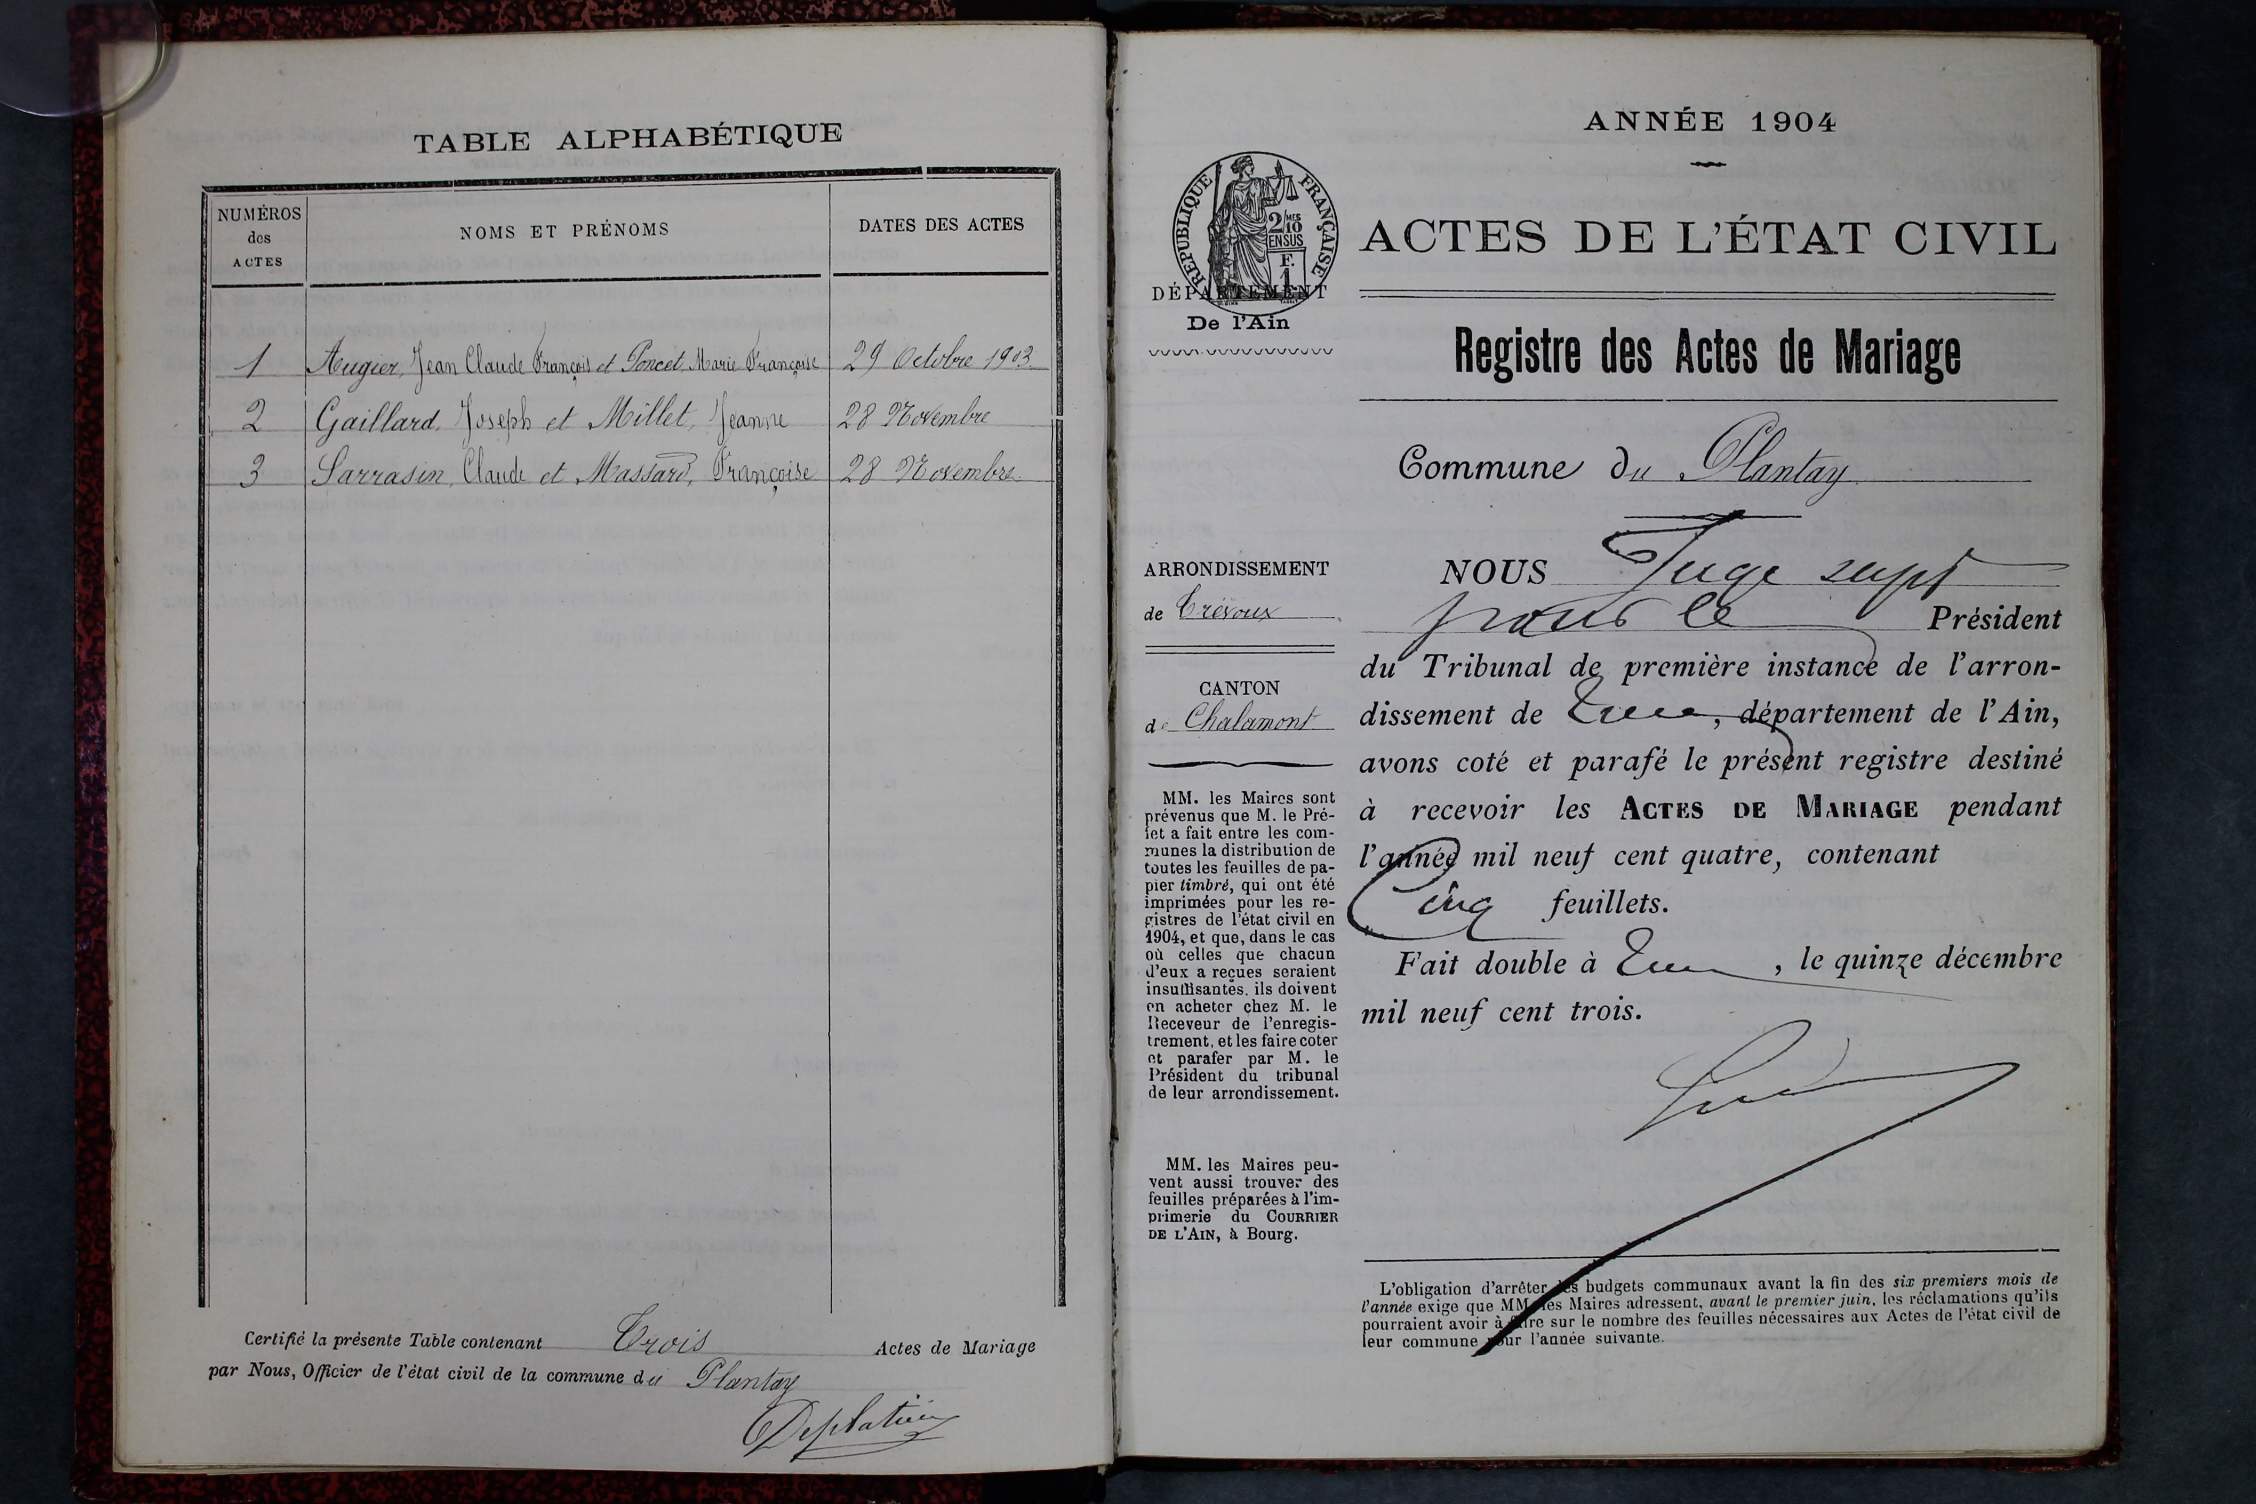 TABLE ALPHABÉTIQUE
NUMÉROS
des
ACTES
NOMS ET PRÉNOMS
DATES DES ACTES
1 Augier, Jean Claude François et Poncet, Marie Françoise 29 Octobre 1903
2 Gaillard, Joseph et Millet, Jeanne 28 Novembre
3 Sarrasin, Claude et Massard, Françoise 28 Novembre
Certifié la présente Table contenant Trois Actes de Mariage
par Nous, Officier de l'état civil de la commune du Plantay
ANNÉE 1904
RÉPUBLIQUE FRANÇAISE
2/10 MES
EN SUS
1 F.
DÉPARTEMENT
De l'Ain
ACTES DE L'ÉTAT CIVIL
Registre des Actes de Mariage
Commune du Plantay
ARRONDISSEMENT
de Trévoux
CANTON
de Chalamont
MM. les Maires sont
prévenus que M. le Pré-
fet a fait entre les com-
munes la distribution de
toutes les feuilles de pa-
pier timbré, qui ont été
imprimées pour les re-
gistres de l'état civil en
1904, et que, dans le cas
où celles que chacun
d'eux a reçues seraient
insuffisantes, ils doivent
en acheter chez M. le
Receveur de l'enregis-
trement, et les faire coter
et parafer par M. le
Président du tribunal
de leur arrondissement.
MM. les Maires peu-
vent aussi trouver des
feuilles préparées à l'im-
primerie du COURRIER
DE L'AIN, à Bourg.
NOUS Juge supt
pour le Président
du Tribunal de première instance de l'arron-
dissement de , département de l'Ain,
avons coté et parafé le présent registre destiné
à recevoir les ACTES DE MARIAGE pendant
l'année mil neuf cent quatre, contenant
Cinq feuillets.
Fait double à , le quinze décembre
mil neuf cent trois.
L'obligation d'arrêter les budgets communaux avant la fin des six premiers mois de
l'année exige que MM. les Maires adressent, avant le premier juin, les réclamations qu'ils
pourraient avoir à faire sur le nombre des feuilles nécessaires aux Actes de l'état civil de
leur commune pour l'année suivante.